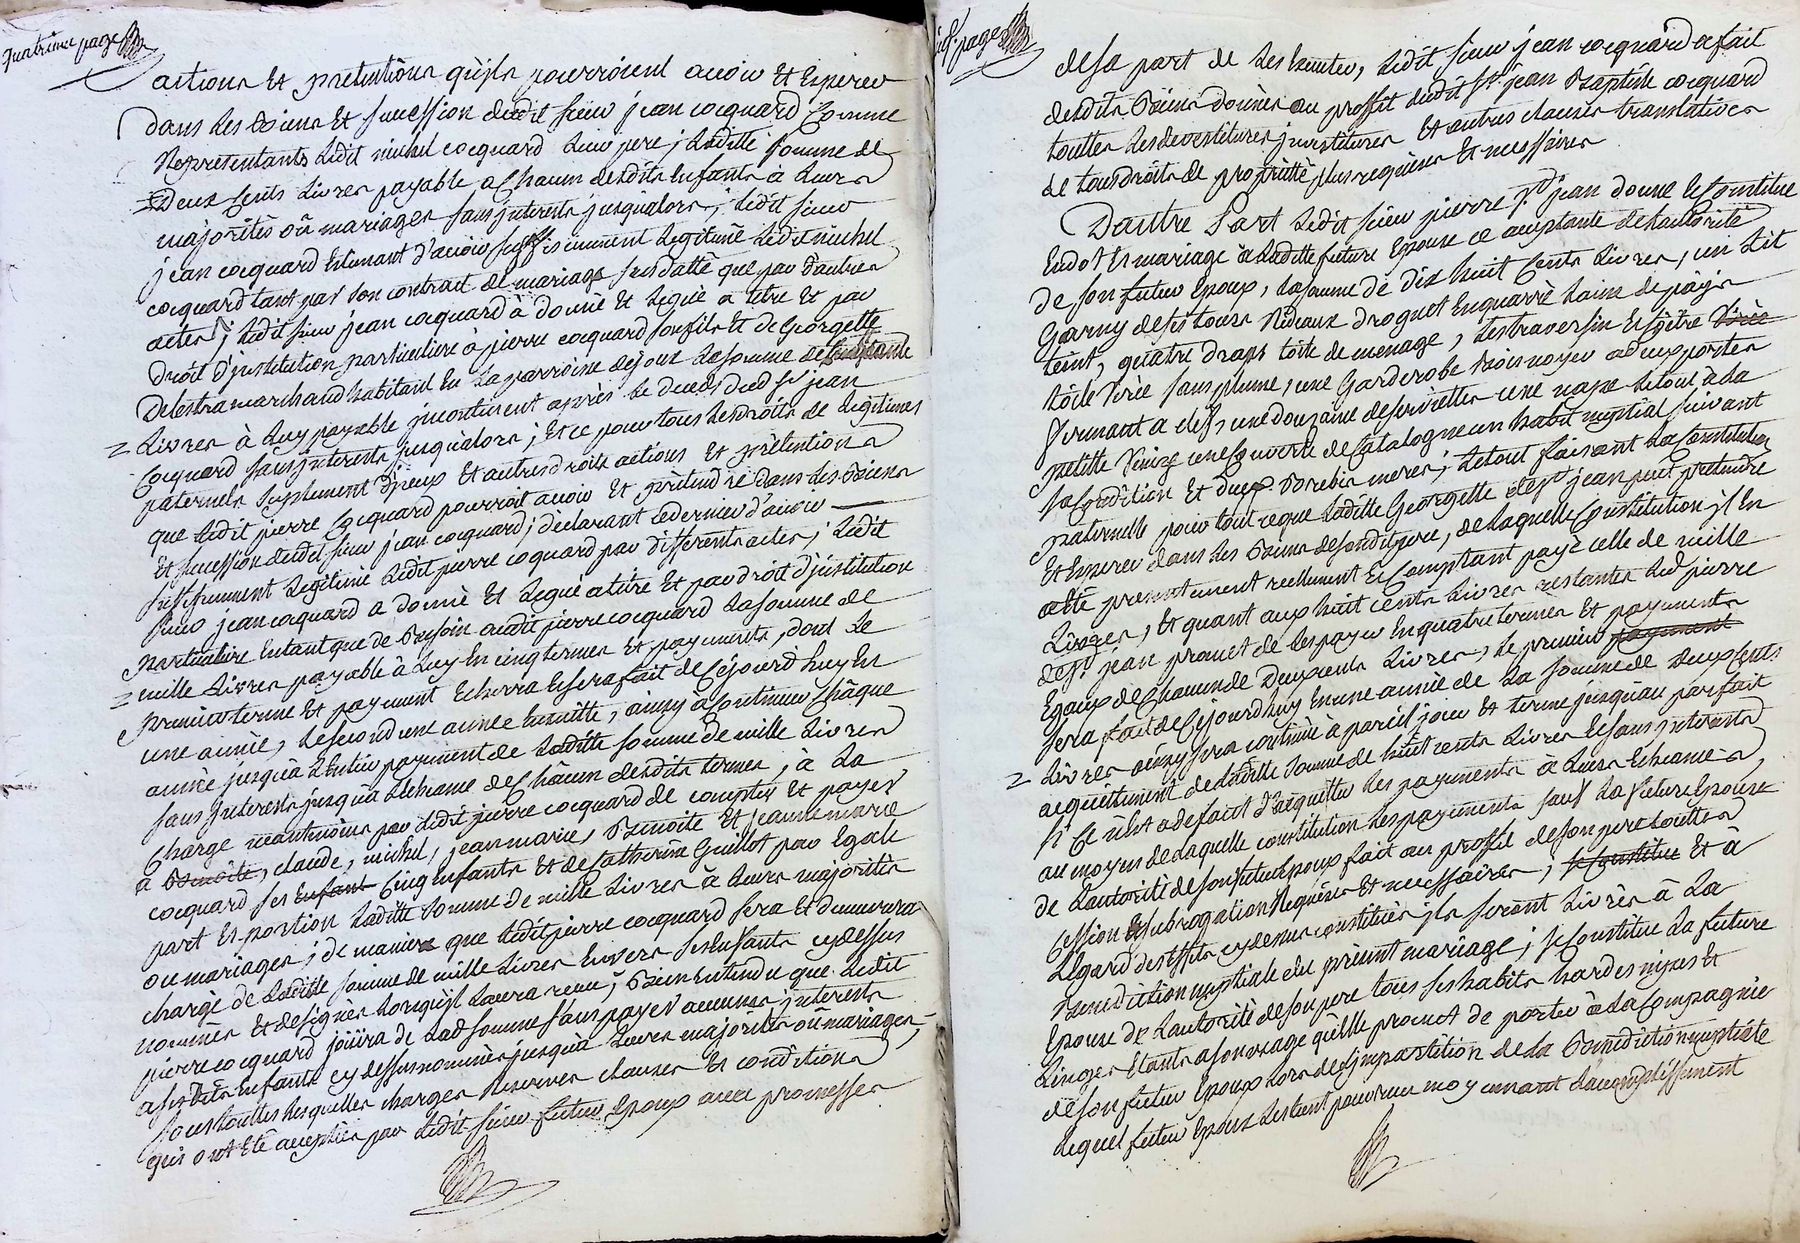 quatrieme page
actions et pretentions qu'ils pourroient avoir et esperer
dans les biens et succession dudit sieur jean cocquard comme
representants ledit michel cocquard leur pere ; laditte somme de
Deux cents livres payable a chacun desdits enfants a leurs
majorités où mariages sans interests jusqualors ; ledit sieur
jean cocquard estimant d'avoir suffisamment legitimé ledit michel
cocquard tant par son contrat de mariage susdatté que par d'autres
actes ; ledit sieur jean cocquard à donné et legué a titre et par
droit d'institution particuliere à pierre cocquard son fils et de Georgette
Delestra marchand habitant en la parroisse de joux la somme de
livres à luy payable incontinent après le deceds dud sr jean
Cocquard sans interests jusqualors ; et ce pour tous les droits de legitimes
paternels suplement d'jceux et autres droits actions et prétentions
que ledit pierre Cocquard pourroit avoir et prétendre dans les biens
et succession dudit sieur jean cocquard ; déclarant ce dernier d'avoir
suffisamment legitimé ledit pierre coquard par differents actes ; ledit
sieur jean cocquard a donné et legué a titre et par droit d'jnstitution
particuliere entant que de besoin audit pierre cocquard la somme de
mille livres payable à luy en cinq termes et payements, dont le
premier terme et payement echerra et sera fait de cejourd'huy en
une année, le second une année ensuitte, ainsy à continuer châque
année jusqu'à l'entier payement de laditte somme de mille livres
sans jnterests jusqu'a l'echeance de châcun desdits termes ; à la
charge neantmoins par ledit pierre cocquard de compter et payer
a benoite, claude, michel, jean marie, benoite et jeanne marie
cocquard ses enfant cinq enfants et de Catherine Guillot par egale
part et portion laditte somme de mille livres à leurs majorités
ou mariages ; de maniere que ledit pierre cocquard sera et demeurera
chargé de laditte somme de mille livres envers ses enfants cy dessus
nommés et designés lorsqu'jl l'aura reçue ; bien entendu que ledit
pierre cocquard joüira de lad somme sans payer aucunes jnterests
a sesdits enfants cy dessus nommés jusqua leurs majorités où mariages ;
sous touttes lesquelles charges reserves clauses et conditions
qui ont été acceptées par ledit sieur futur epoux avec promesses
page
de sa part de les executer, ledit sieur jean cocquard a fait
desdits biens donnés au proffit dudit sr jean Baptiste cocquard
touttes les devestitures jnvestitures et autres clauses translatives
de tous droits de propriété plus requises et necessaires
Dautre Part ledit sieur pierre de st jean donne et constitue
en dot et mariage à laditte future Epouse ce acceptante de l'autorité
de son futur Epoux, la somme de dix huit cents livres, un lit
Garny de ses tours Rideaux droguet en quarré laine de pays
teint, quatre draps toile de menage, les traversin et coitre
toile sans plume, une garderobe bois noyer a deux portes
fermant a clef, une douzaine de serviettes une nape le tout à la
petitte Venize une couverte de Catalogne un habit nuptial suivant
sa condition et deux brebis meres ; le tout faisant la Constitution
paternelle pour tout ce que laditte Georgette de st jean peut pretendre
et esperer dans les biens de sondit pere, de laquelle Constitution jl en
a été presentement reellement et comptant payé celle de mille
livres, et quant aux huit cents livres restantes led pierre
de st jean promet de les payer en quatre termes et payements
Egaux de chacun de Deux cents livres, le premier payement
sera fait de cejourd'huy en une année de la somme de deux cents
livres ainsy sera continué à pareil jour et terme jusqu'au parfait
acquittement de laditte somme de huit cents livres et sans jnterests
si ce n'est a defaut d'acquitter les payements a leurs echeances,
au moyen de laquelle constitution les payements faits la future Epouse
de l'autorité de son futur Epoux fait au proffit de son pere touttes
cession et subrogation requises et necessaires ; se constitue et à
l'égard des effets cy dessus constitués jls seront livrés à la
benediction nuptiale du présent mariage ; se constitue la future
Epouse de l'autorité de son pere tous ses habits hardes nipes et
linges Etants a son usage qu'elle promet de porter à la compagnie
de son futur Epoux lors de l'jmpartition de la benediction nuptiale
lequel futur Epoux s'estient pour reçu moyennant l'accomplissement